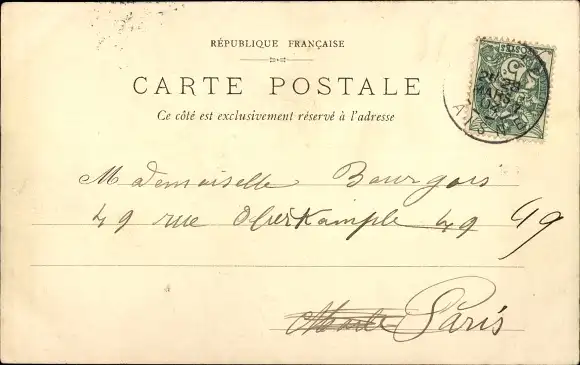 RÉPUBLIQUE FRANÇAISE
CARTE POSTALE
Ce côté est exclusivement réservé à l'adresse
Mademoiselle Bourgois
49 rue Oberkampfe 49 49
Paris